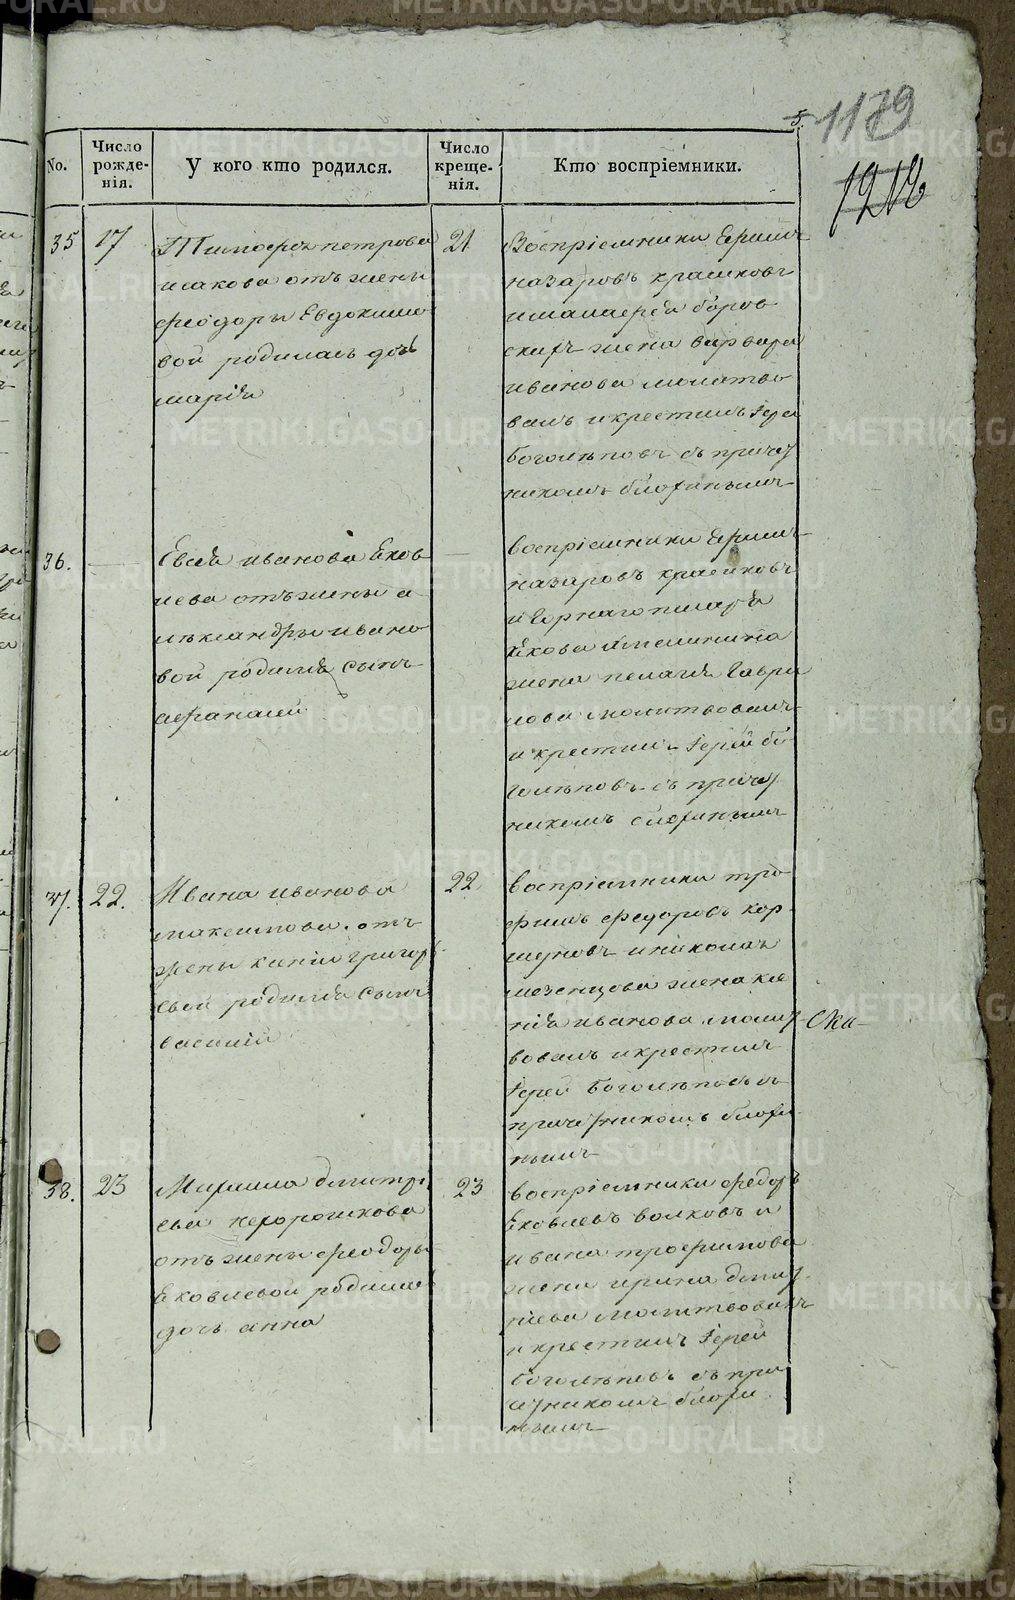 5.
1179
1212
No.
Число рожде-нія.
У кого кто родился.
Число креще-нія.
Кто воспріемники.
35
17
Тимофея петрова
исакова отъ жены
феодоры Евдокимо
вой родилась дочь
марія
21
Воспріемники Ефимъ
назаровъ красиковъ
жена варвара
иванова молитво
валъ и крестилъ Іерей
боголѣповъ съ причет
никомъ
36.
иванова Яков
лева отъ жены а
лѣксандры ивано
вой родился сынъ
афанасий
воспріемники Ефимъ
назаровъ красиковъ
и горнаго писаря
Якова
жена пелагія Гаври
лова молитвовалъ
и крестилъ Іерей бо
голѣповъ съ причет
никомъ
37.
22.
Ивана иванова
максимова отъ
жены ксеніи григор
ьевой родился сынъ
василий
22
воспріемники тро
фимъ федоровъ кор
шуновъ и
жена ксе
нія иванова молит
вовалъ и крестилъ
Іерей боголѣповъ съ
причетникомъ
38.
23
Михаила дмитрі
ева нехорошкова
отъ жены феодоры
Яковлевой родилась
дочь анна
23
воспріемники федоръ
Яковлевъ волковъ и
ивана трофимова
жена ирина дмит
ріева молитвовалъ
и крестилъ Іерей
боголѣповъ съ при
четникомъ
METRIKI.GASO-URAL.RU